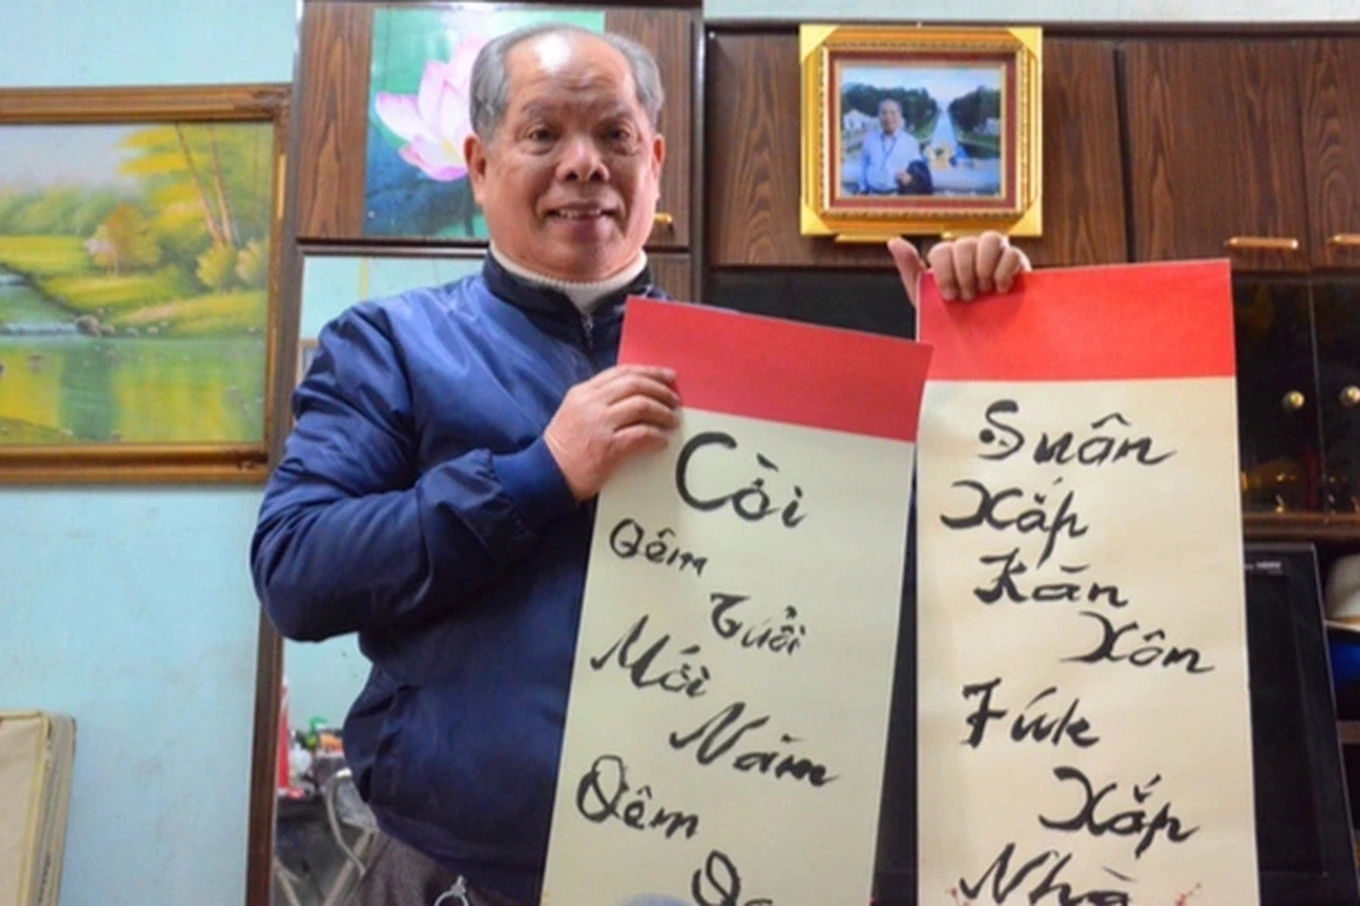 Cời
Qêm
Tuổi
Mới
Năm
Qêm
Suân
Xắp
Kăn
Xôm
Fúk
Xắp
Nhà